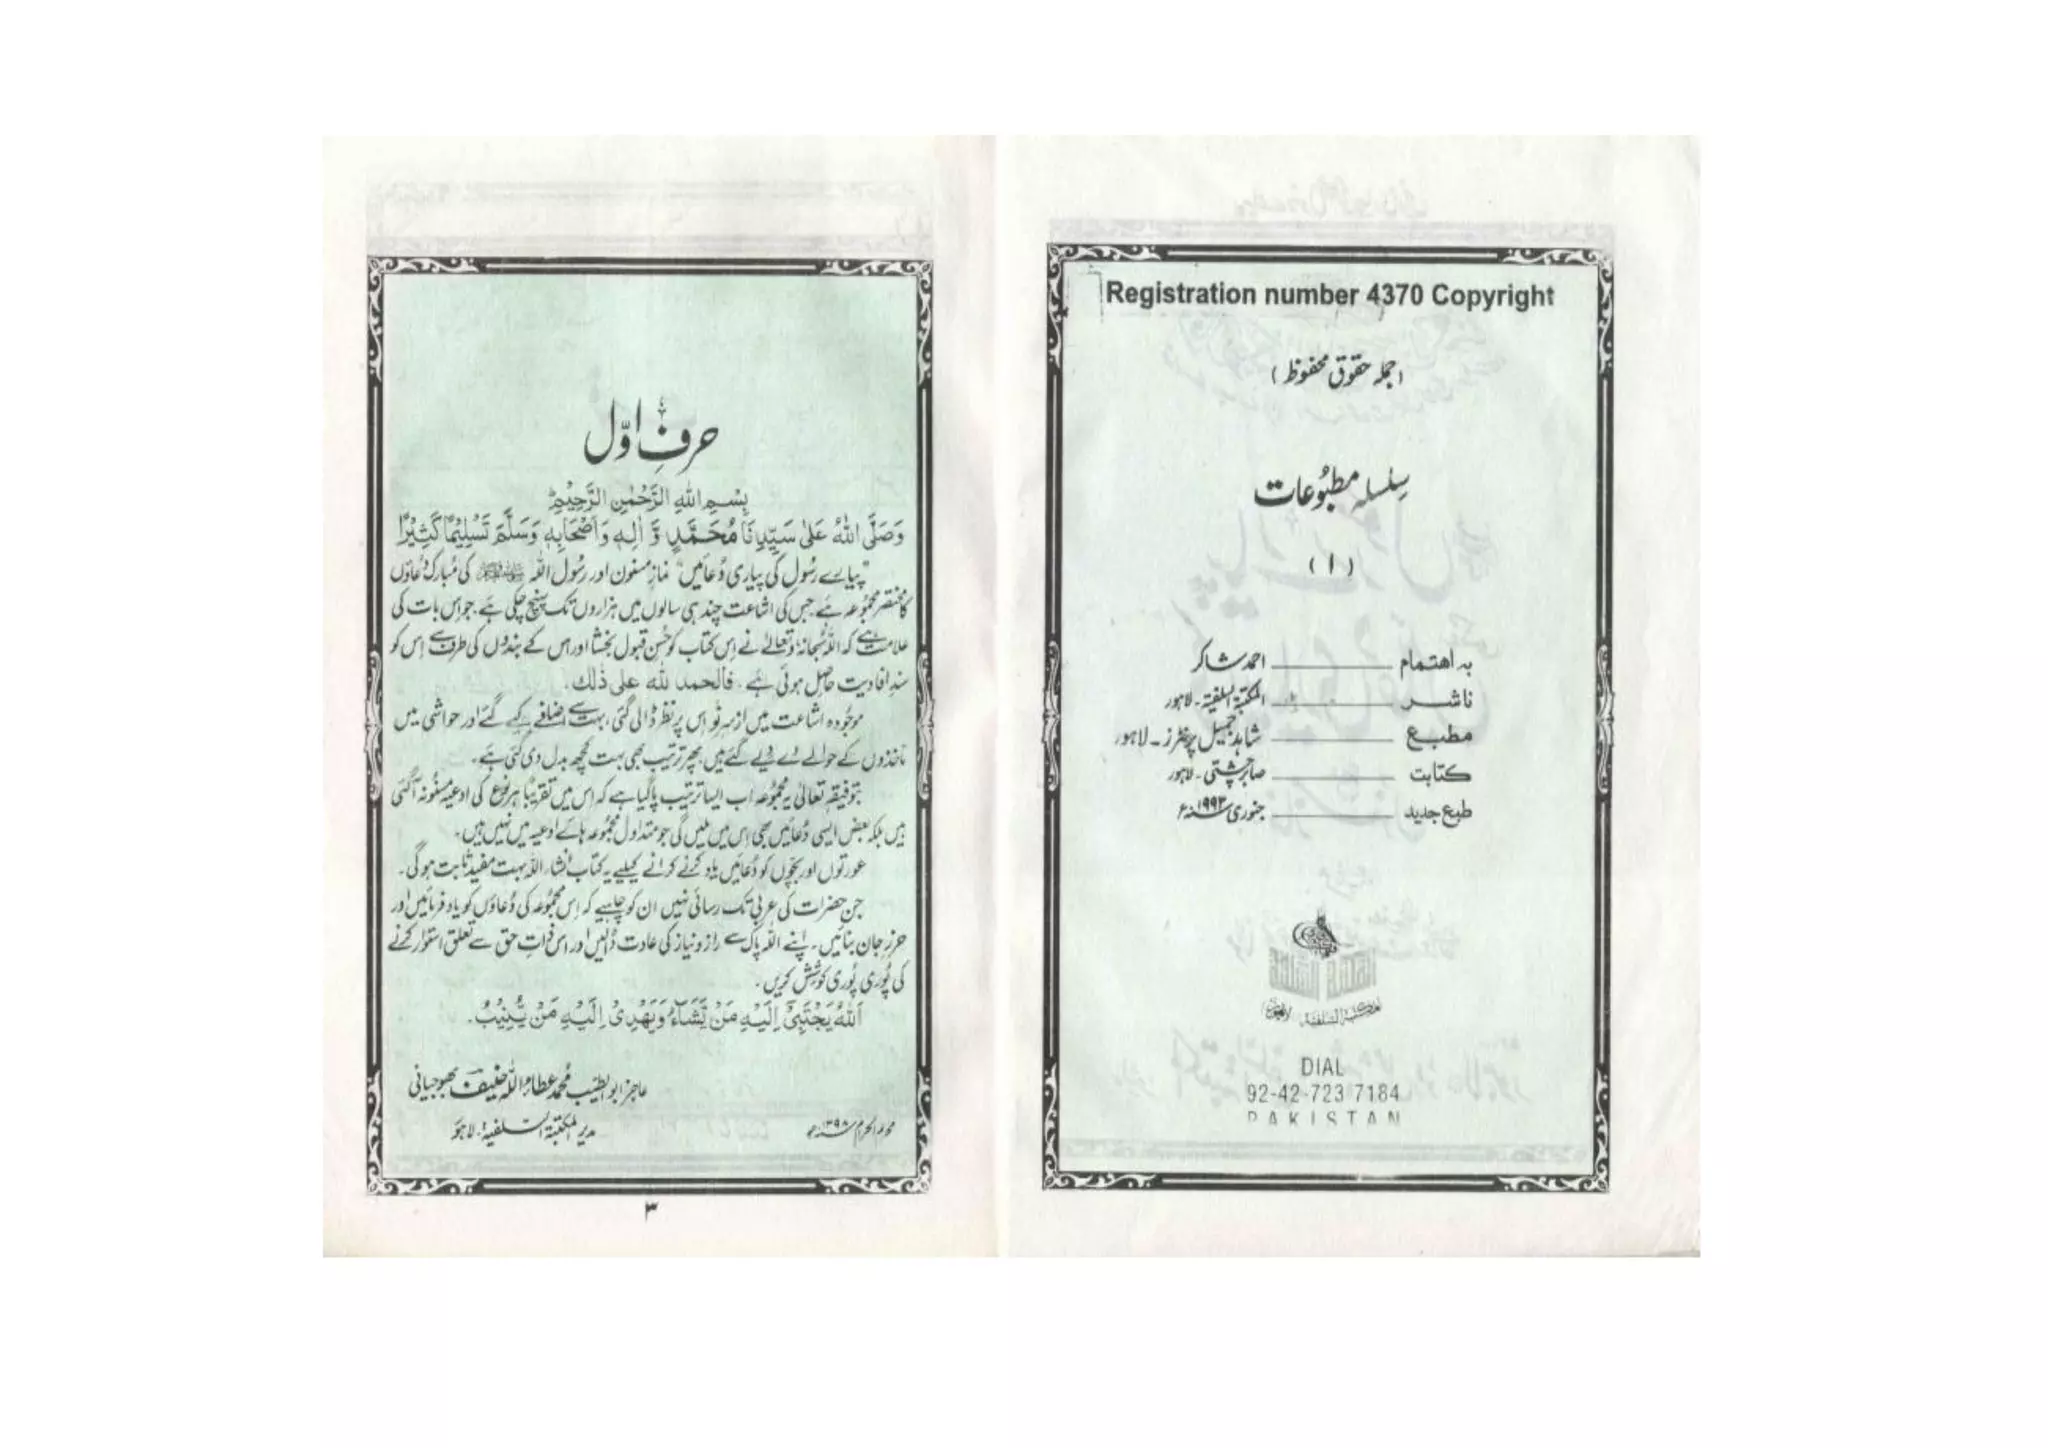 Registration number 4370 Copyright
(جملہ حقوق محفوظ)
سِلسلہ مطبُوعات
(۱)
بہ اھتمام ــــــ احمد شاکر
ناشر ــــــ المکتبۃ السلفیۃ ۔ لاہور
مطبع ــــــ شاہد جمیل پرنٹرز ۔ لاہور
کتابت ــــــ صابر چشتی ۔ لاہور
طبع جدید ــــــ جنوری ۱۹۹۳ء
المکتبۃ السلفیۃ لاہور
DIAL
92-42-723 7184
PAKISTAN
حرفِ اوّل
بِسْمِ اللهِ الرَّحْمٰنِ الرَّحِيْمِ
وَصَلَّی اللهُ عَلٰی سَيِّدِنَا مُحَمَّدٍ وَّ اٰلِهٖ وَاَصْحَابِهٖ وَسَلَّمَ تَسْلِيْمًا كَثِيْرًا
"پیارے رسُول کی پیاری دُعائیں" نمازِ مسنون اور رسُول اللہ ﷺ کی مُبارک دُعاؤں
کا مختصر مجمُوعہ ہے جس کی اشاعت چند ہی سالوں میں ہزاروں تک پہنچ چکی ہے۔ جو اِس بات کی
علامت ہے کہ اللہ سُبحانہٗ و تعالےٰ نے اِس کتاب کو حُسنِ قبول بخشا اور اس کے بندوں کی طرف سے اِس کو
سندِ افادیت حاصِل ہوئی ہے۔ فالحمد للّٰہ علی ذٰلك۔
موجُودہ اشاعت میں ازسرِ نَو اِس پر نظر ڈالی گئی، بہت سے اضافے کیے گئے اور حواشی میں
ماخذوں کے حوالے دے دیے گئے ہیں۔ پھر ترتیب بھی بہت کچھ بدل دی گئی ہے۔
بتوفیقہٖ تعالیٰ یہ مجمُوعہ اب ایسا ترتیب پا گیا ہے کہ اِس میں تقریباً ہر نوع کی ادعیہ مسنُونہ آ گئی
ہیں بلکہ بعض ایسی دُعائیں بھی اِس میں ملیں گی جو متداول مجمُوعہ ہائے ادعیہ میں نہیں ہیں۔
عورتوں اور بچّوں کو دُعائیں یاد کرنے کرانے کیلیے یہ کتاب اِنشاء اللہ بہت مفید ثابت ہو گی۔
جن حضرات کی عربی تک رسائی نہیں ان کو چاہیے کہ اِس مجمُوعہ کی دُعاؤں کو یاد فرمائیں اور
حرزِ جان بنائیں۔ اپنے اللہ پاک سے راز و نیاز کی عادت ڈالیں اور اس ذاتِ حق سے تعلق استوار کرنے
کی پُوری پُوری کوشِش کریں۔
اَللهُ يَجْتَبِیْٓ اِلَيْهِ مَنْ يَّشَآءُ وَيَهْدِیْ اِلَيْهِ مَنْ يُّنِيْبُ۔
عاجز ابو الطیّب محمّد عطاء اللہ حنیف بھوجیانی
محرم الحرام ۱۳۹۸ھ مدیر المکتبۃ السّلفیۃ، لاہور
۳